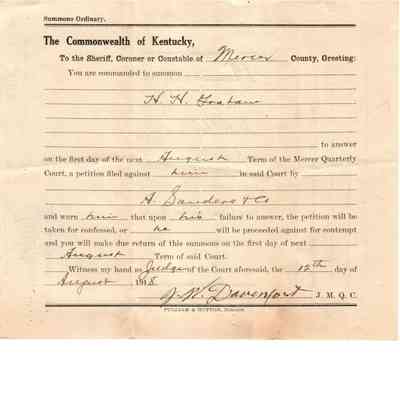 Summons Ordinary.
The Commonwealth of Kentucky,
To the Sheriff, Coroner or Constable of Mercer County, Greeting:
You are commanded to summon
H. H. Graham
to answer
on the first day of the next August Term of the Mercer Quarterly
Court, a petition filed against him in said Court by
A. Sanders & Co
and warn him that upon his failure to answer, the petition will be
taken for confessed, or he will be proceeded against for contempt
and you will make due return of this summons on the first day of next
August Term of said Court.
Witness my hand as Judge of the Court aforesaid, the 12th day of
August 1918 J. W. Davenport J. M. Q. C.
PULLIAM & HUTTON,